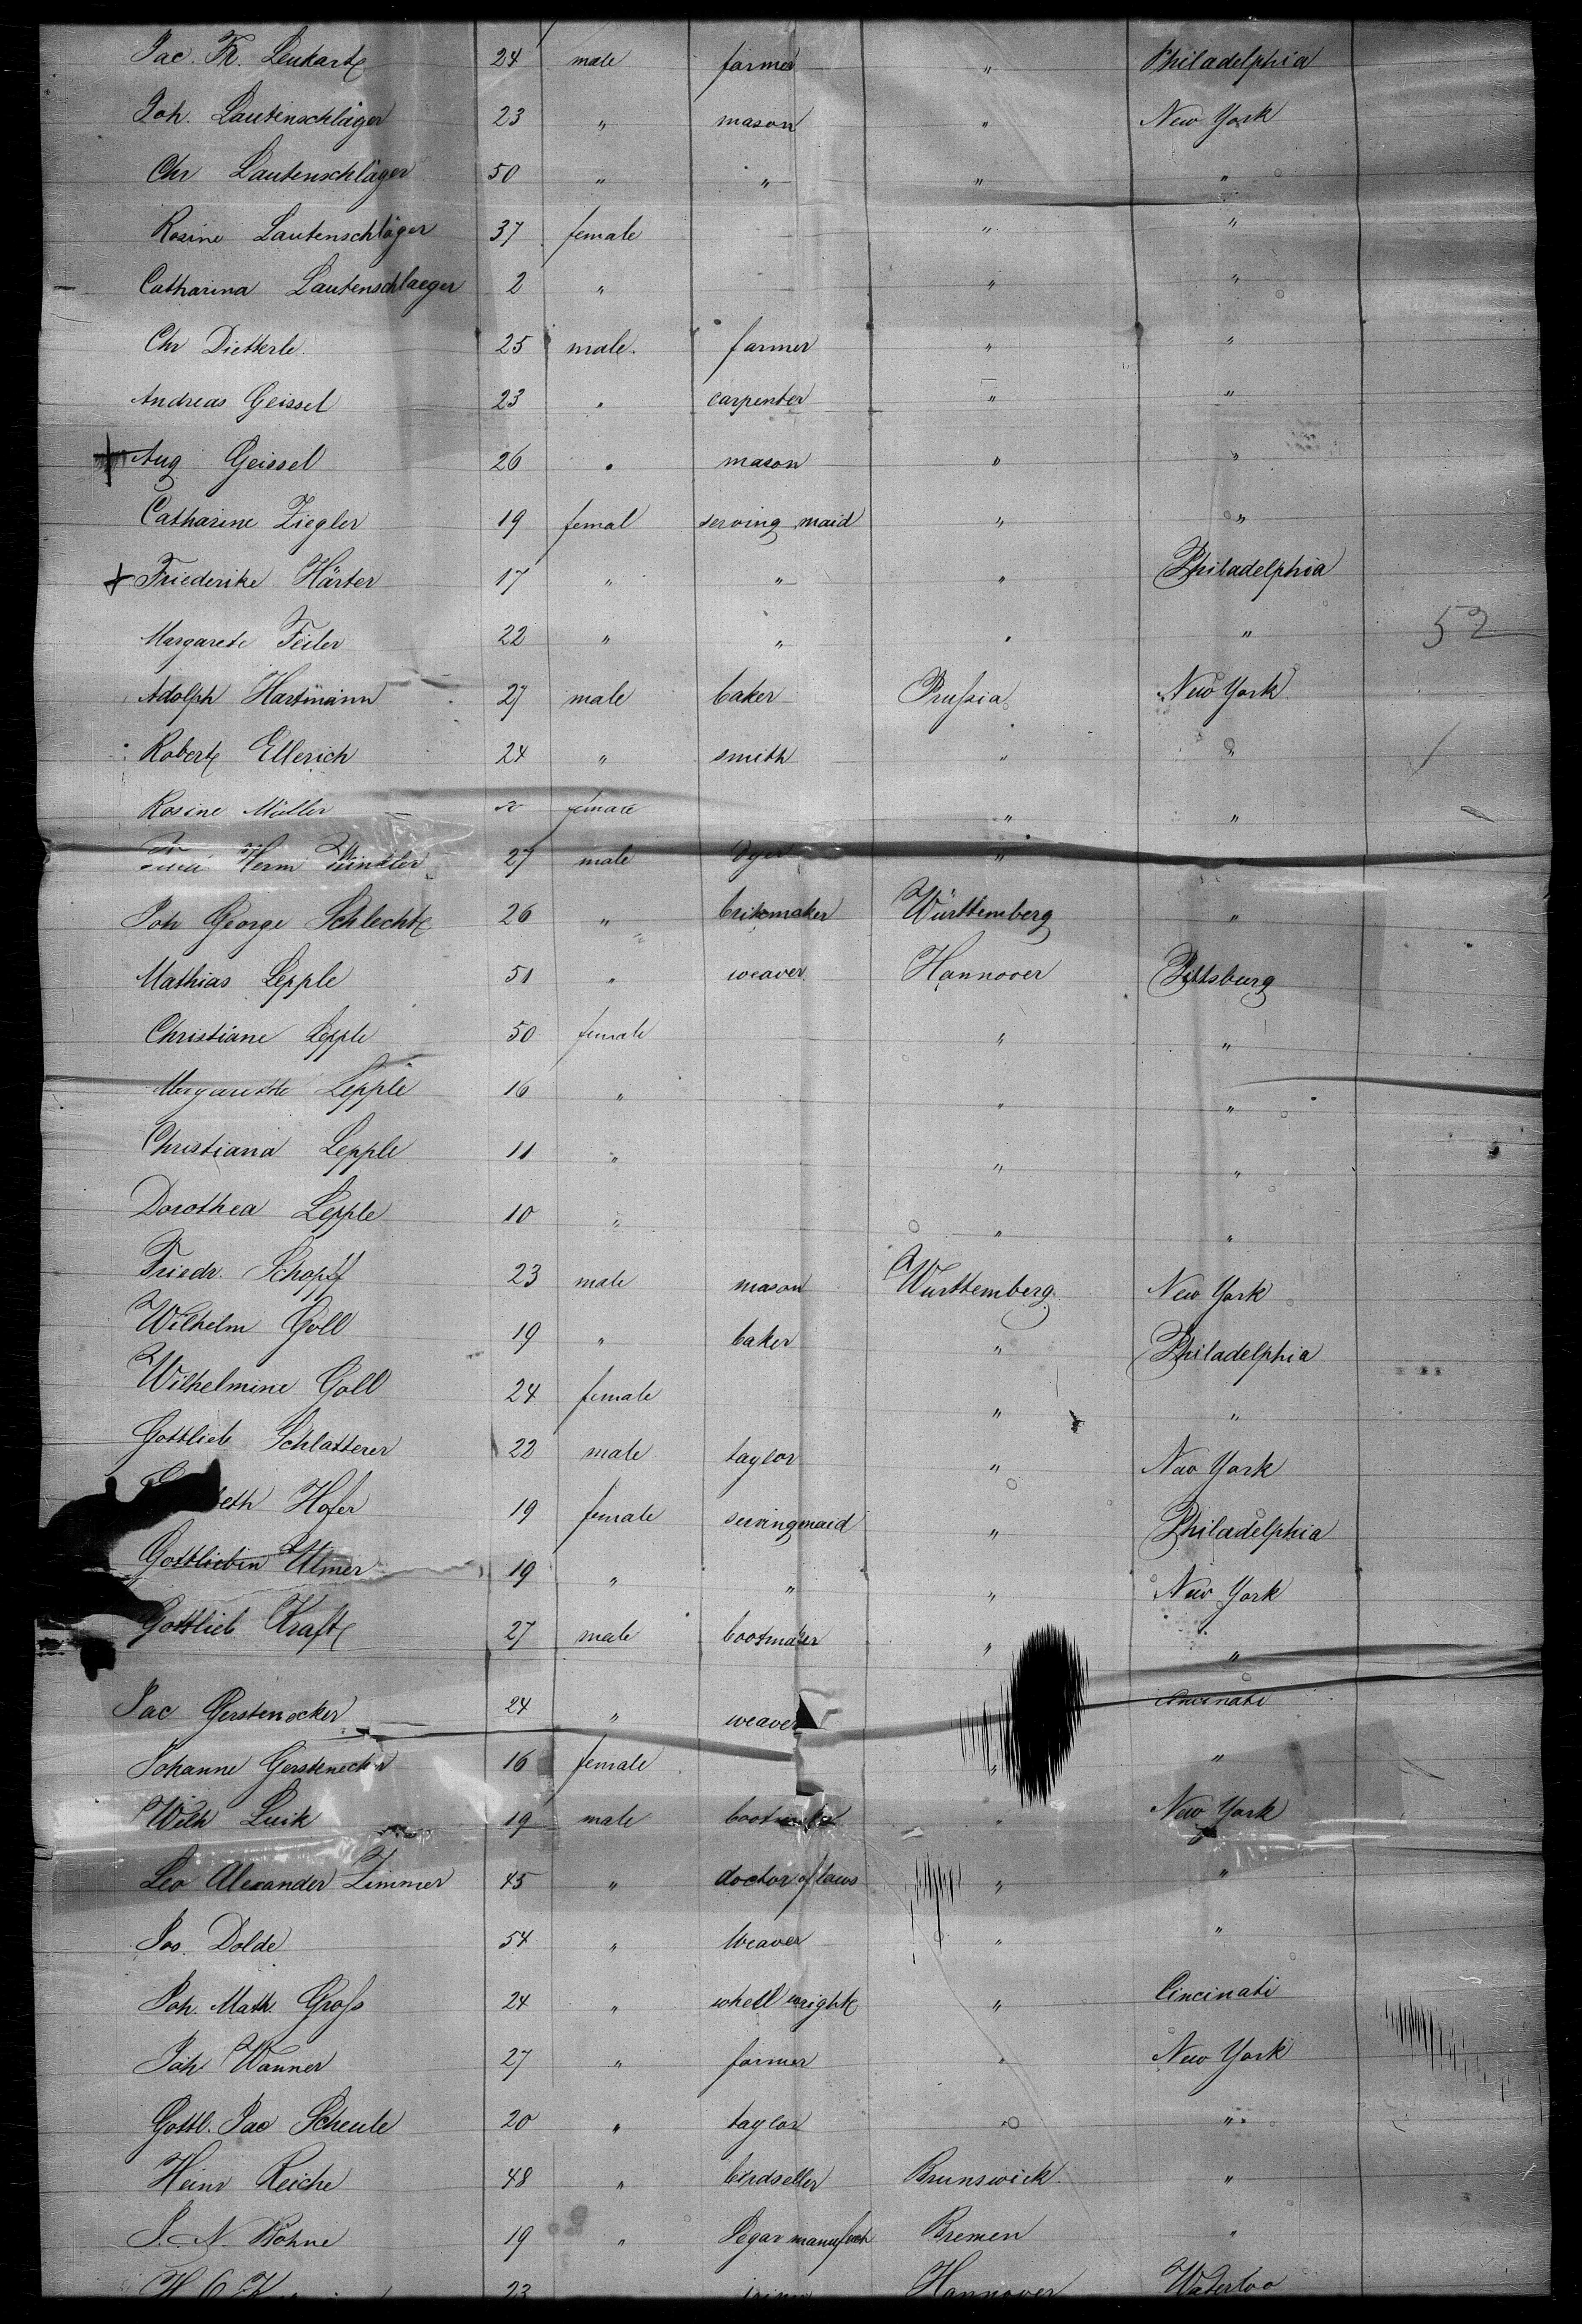 Jac. Fr. Leukart 24 male farmer " Philadelphia
Joh. Lautinschläger 23 " mason " New York
Chr Lautenschläger 50 " " " "
Rosine Lautenschläger 37 female " "
Catharina Lautenschlaeger 2 " " "
Chr Dietterle 25 male. farmer " "
Andreas Geissel 23 " carpenter " "
Aug Geissel 26 " mason " "
Catharine Ziegler 19 femal serving maid " "
Friederike Härter 17 " " " Philadelphia
Margarete Feiler 22 " " " " 52
Adolph Hartmann 27 male baker Prussia New York
Robert Ellerich 24 " smith " "
Rosine Müller female " "
Herm Winkler 27 male Dyer "
Joh George Schlecht 26 " brikmaker Württemberg "
Mathias Lepple 51 " weaver Hannover Pittsburg
Christiane Lepple 50 female " "
Margarethe Lepple 16 " " "
Christiana Lepple 11 " " "
Dorothea Lepple 10 " " "
Friedr. Schopff 23 male mason Wurttemberg New York
Wilhelm Goll 19 " baker " Philadelphia
Wilhelmine Goll 24 female " "
Gottlieb Schlatterer 22 male taylor " New York
beth Hofer 19 female servingmaid " Philadelphia
Gottliebin Ulmer 19 " " " New York
Gottlieb Kraft 27 male bootmaker " "
Jac Gerstenecker 24 " weaver Cincinati
Johanne Gerstenecker 16 female " "
Wilh Luik 19 male " New York
Leo Alexander Zimmer 45 " doctor of laws " "
Jos. Dolde 54 " Weaver " "
Joh. Math Gross 24 " whell wright " Cincinati
Joh Wanner 27 " farmer " New York
Gottl. Jac Scheule 20 " taylor " "
Heinr Reiche 48 " birdseller Brunswick "
J. N. Böhne 19 " Segar manufact Bremen "
23 Hannover Waterloo